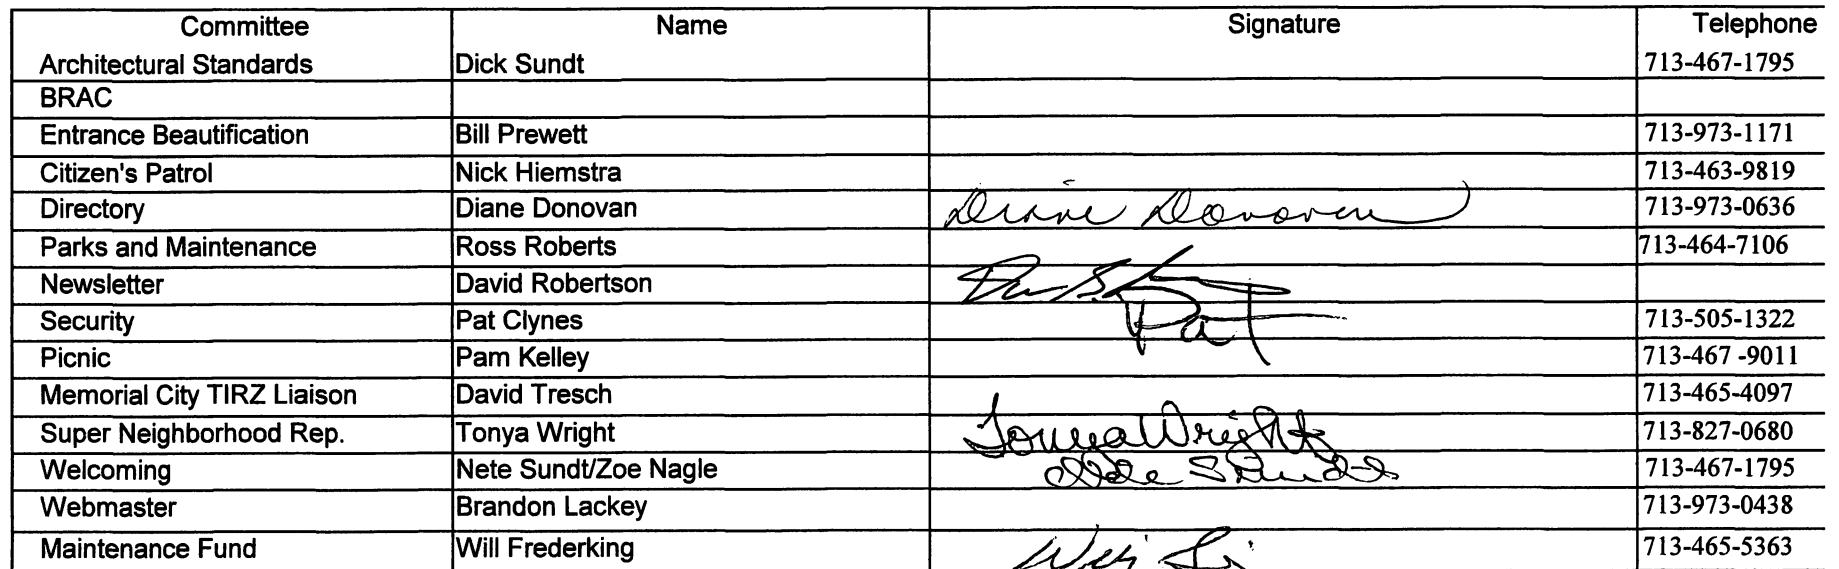 Committee Name Signature Telephone
Architectural Standards Dick Sundt 713-467-1795
BRAC
Entrance Beautification Bill Prewett 713-973-1171
Citizen's Patrol Nick Hiemstra 713-463-9819
Directory Diane Donovan Diane Donovan 713-973-0636
Parks and Maintenance Ross Roberts 713-464-7106
Newsletter David Robertson
Security Pat Clynes Pat 713-505-1322
Picnic Pam Kelley 713-467 -9011
Memorial City TIRZ Liaison David Tresch 713-465-4097
Super Neighborhood Rep. Tonya Wright Tonya Wright 713-827-0680
Welcoming Nete Sundt/Zoe Nagle Nete Sundt 713-467-1795
Webmaster Brandon Lackey 713-973-0438
Maintenance Fund Will Frederking 713-465-5363